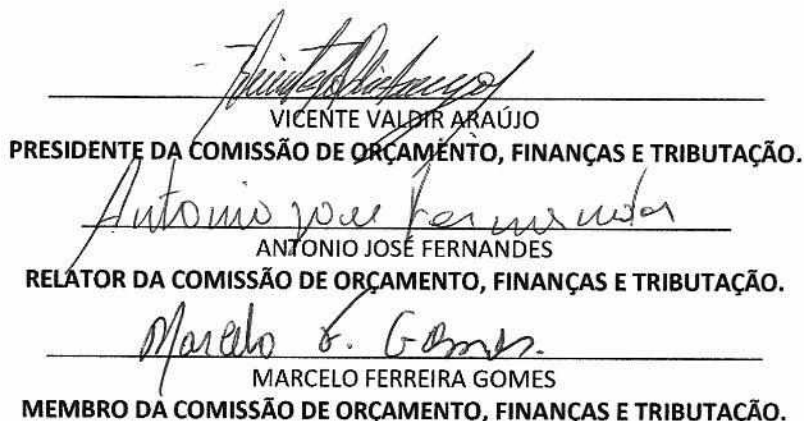 VICENTE VALDIR ARAÚJO
PRESIDENTE DA COMISSÃO DE ORÇAMENTO, FINANÇAS E TRIBUTAÇÃO.
Antonio José Fernandes
ANTONIO JOSÉ FERNANDES
RELATOR DA COMISSÃO DE ORÇAMENTO, FINANÇAS E TRIBUTAÇÃO.
Marcelo F. Gomes.
MARCELO FERREIRA GOMES
MEMBRO DA COMISSÃO DE ORÇAMENTO, FINANÇAS E TRIBUTAÇÃO.